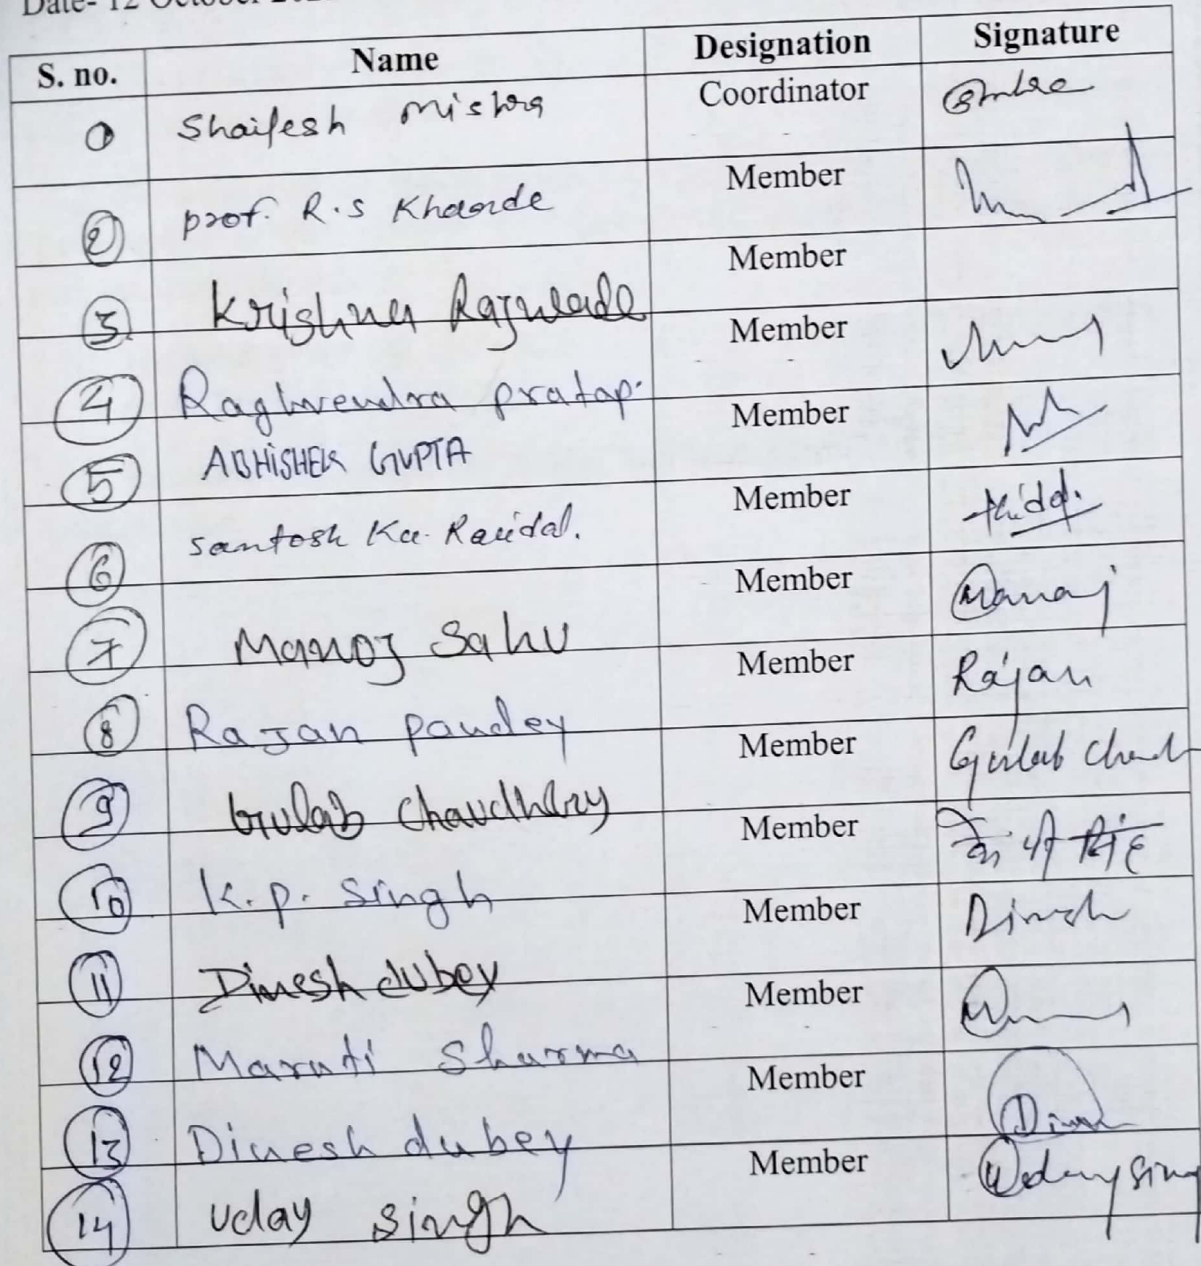 Date- 12 October
S. no. Name Designation Signature
1 Shailesh Mishra Coordinator
2 prof. R.S Kharde Member
3 Krishna Rajwade Member
4 Raghvendra pratap. Member
5 ABHISHEK GUPTA Member
6 Santosh Ku. Member
7 Manoj Sahu Member Manoj
8 Rajan pandey Member Rajan
9 Gulab Chaudhary Member Gulab Chand
10 K.p. Singh Member के पी सिंह
11 Dinesh dubey Member Dinesh
12 Maruti Sharma Member
13 Dinesh dubey Member
14 Uday singh Member Uday Sing